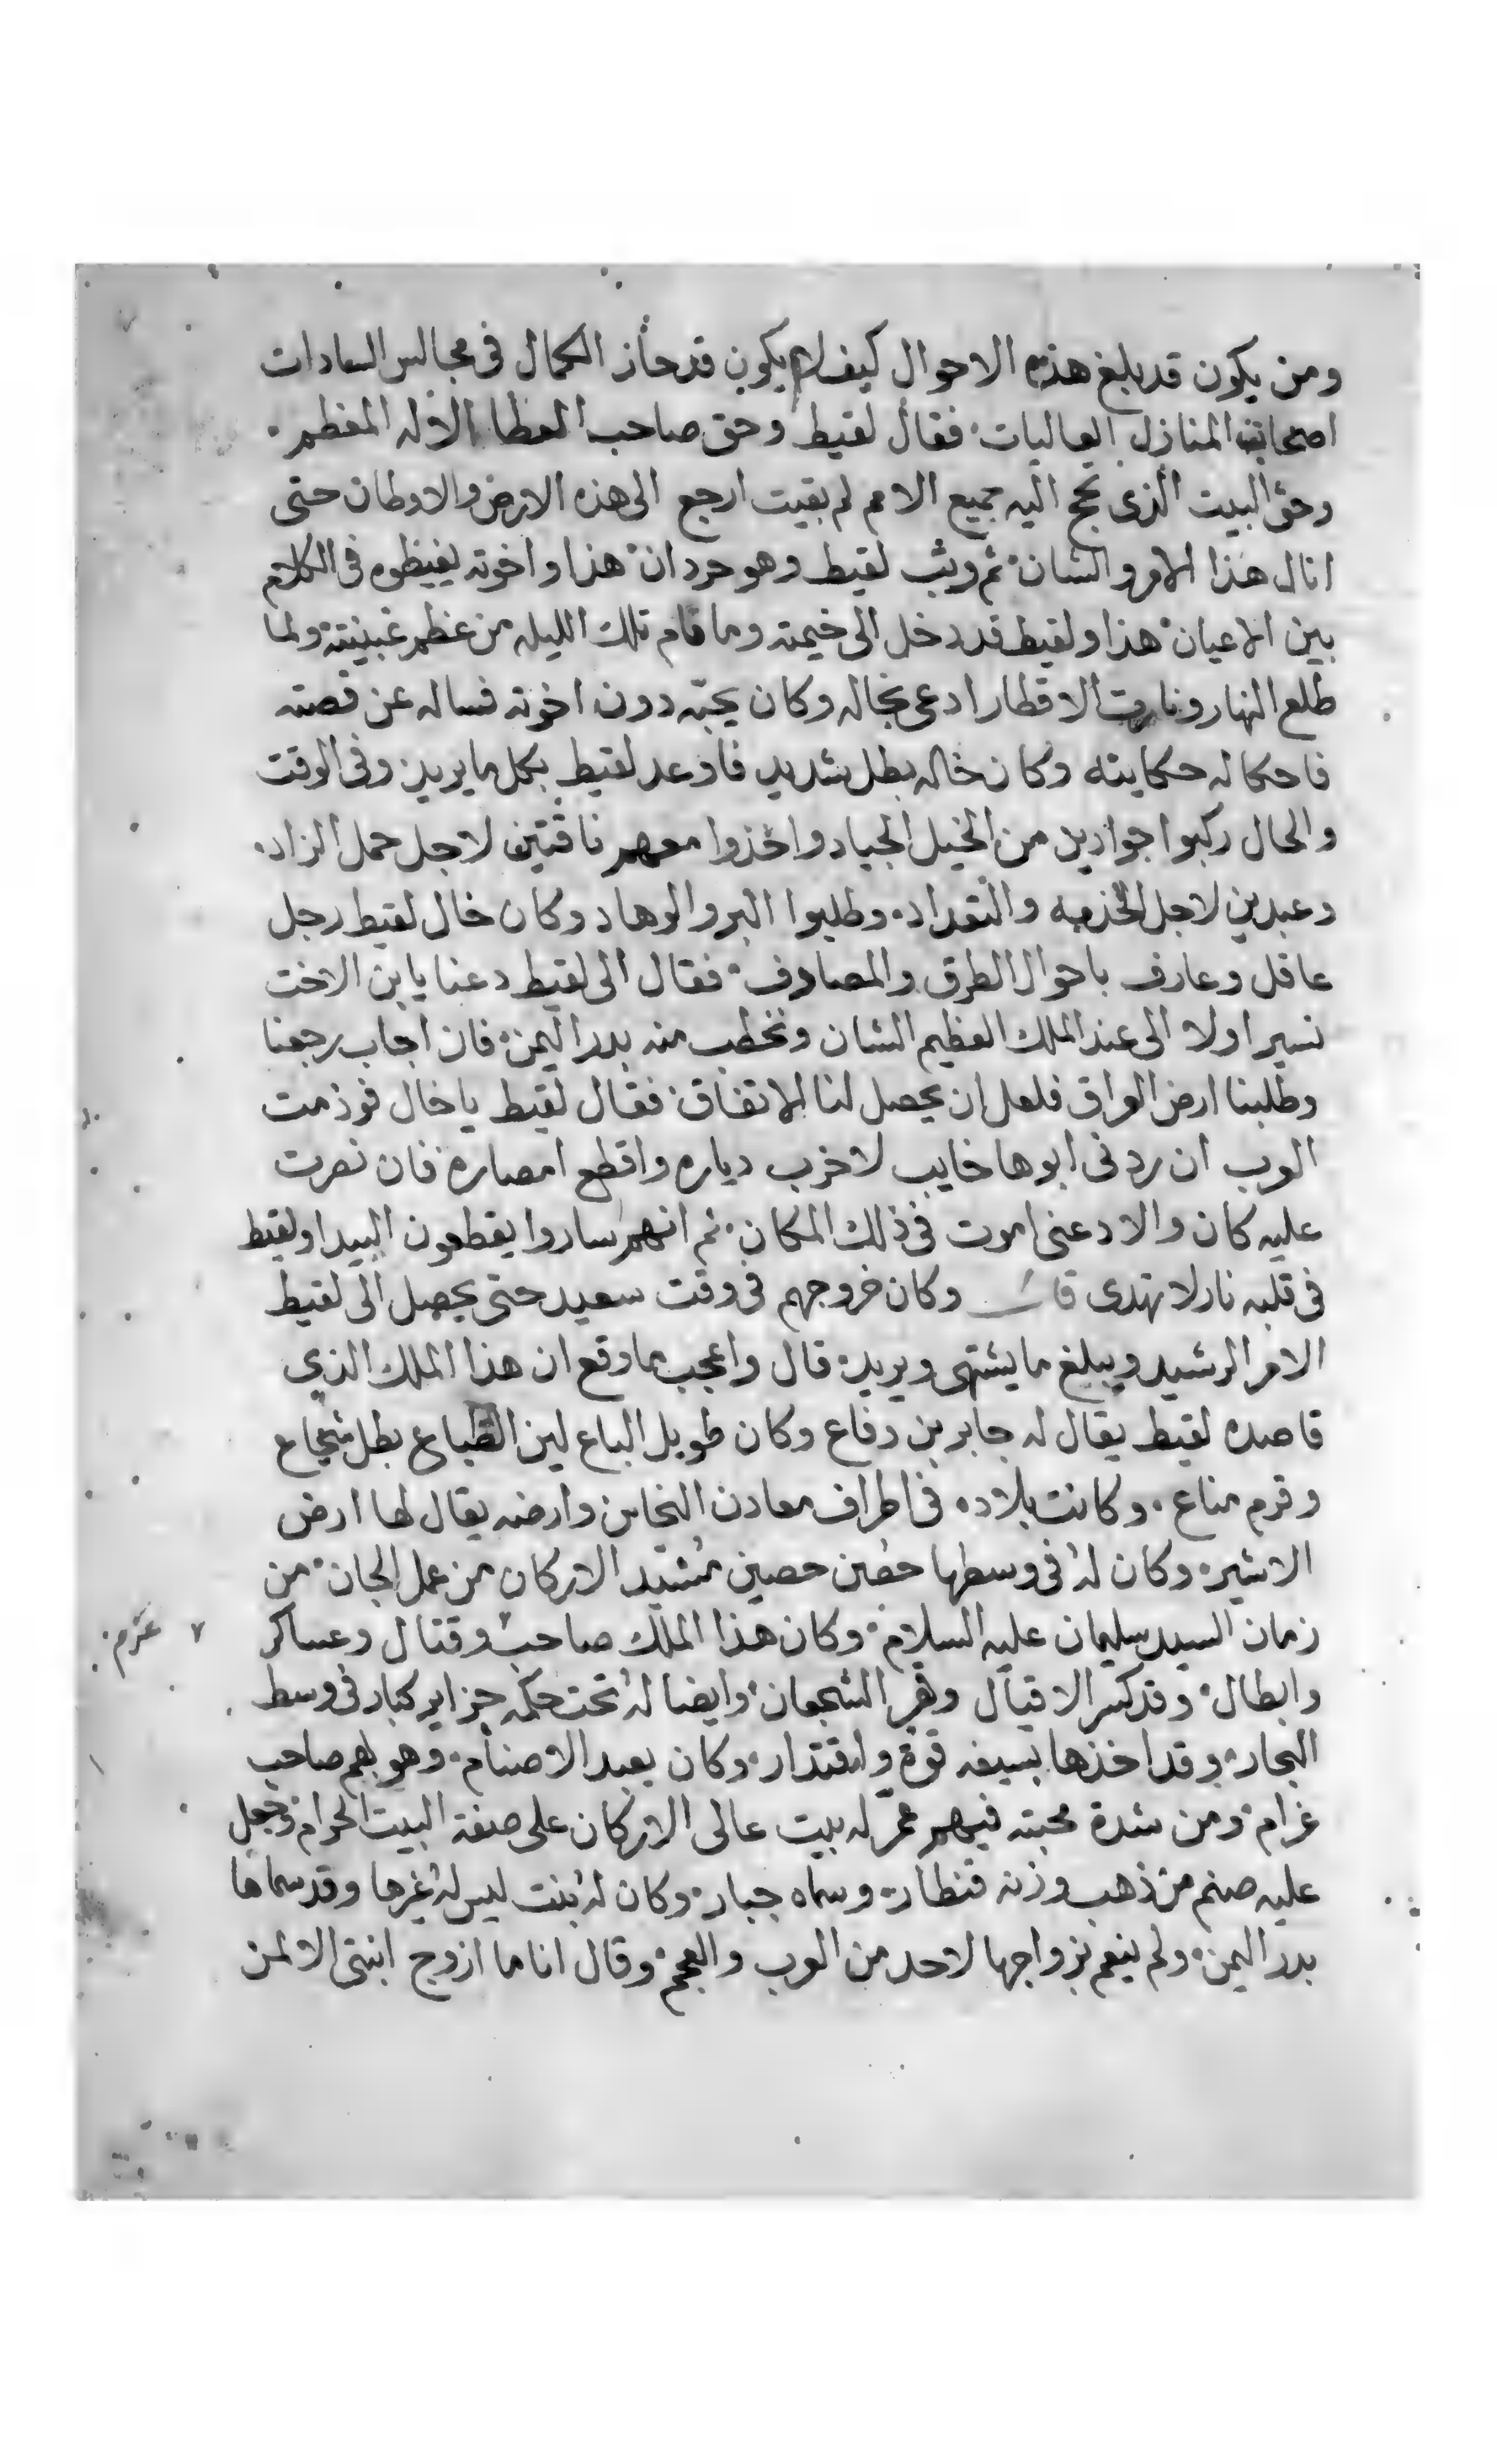 ومن يكون قد بلغ هذه الاحوال كيف لا يكون قد حاز الكمال فى مجالس السادات
اصحاب المنازل العاليات فقال لقيط وحق صاحب العطا الاله المعظم
وحق البيت الذى تحج اليه جميع الامم لم بقيت ارجع الى هذه الارض والاوطان حتى
انال هذا الامر والشان ثم وثب لقيط وهو حردان هذا واخوته يغيظوه فى الكلام
بين الاعيان هذا ولقيط قد دخل الى خيمته وما قام تلك الليله من عظم غبينيته ولما
طلع النهار ونارت الاقطار ادعى بخاله وكان يحبّه دون اخوته فساله عن قصته
فاحكا له حكايته وكان خاله بطل شديد فاوعد لقيط بكل ما يريد وفى الوقت
والحال ركبوا جوادين من الخيل الجياد واخذوا معهم ناقتين لاجل حمل الزاد
وعبدين لاجل الخدمه والتعداد وطلبوا البر والوهاد وكان خال لقيط رجل
عاقل وعارف باحوال الطرق والمصادف فقال الى لقيط دعنا يا ابن الاخت
نسير اولا الى عند الملك العظيم الشان ونخطب منه بدر اليمن فان اجاب رجعنا
وطلبنا ارض العراق فلعل ان يحصل لنا الاتفاق فقال لقيط يا خال فوذمت
العرب ان ردنى ابوها خايب لاخرب دياره واقطع امصاره فان نصرت
عليه كان والا دعنى اموت فى ذلك المكان ثم انهم ساروا يقطعون البيدا ولقيط
فى قلبه نار لا تهدى قال وكان خروجهم فى وقت سعيد حتى يحصل الى لقيط
الامر الرشيد ويبلغ ما يشتهى ويريد قال واعجب ما وقع ان هذا الملك الذى
قاصده لقيط يقال له جابر بن دفاع وكان طويل الباع لين الطباع بطل شجاع
وقرم مناع وكانت بلاده فى اطراف معادن النحاس وارضه يقال لها ارض
الاثير وكان له فى وسطها حصن حصين مشيّد الاركان من عمل الجان من
زمان السيد سليمان عليه السلام وكان هذا الملك صاحب وقتال وعساكر
عزم
وابطال وقد كسر الاقيال وقهر الشجعان وايضا له تحت حكمه جزاير كبار فى وسط
البحار وقد اخذها بسيفه قوة واقتدار وكان يعبد الاصنام وهو بهم صاحب
غرام ومن شدة محبته فيهم عمّر له بيت عالى الاركان على صفة البيت الحرام وجعل
عليه صنم من ذهب وزنه قنطار وسماه جبار وكان له بنت ليس له غيرها وقد سماها
بدر اليمن ولم ينعم بزواجها لاحد من العرب والعجم وقال انا ما ازوج ابنتى الا لمن